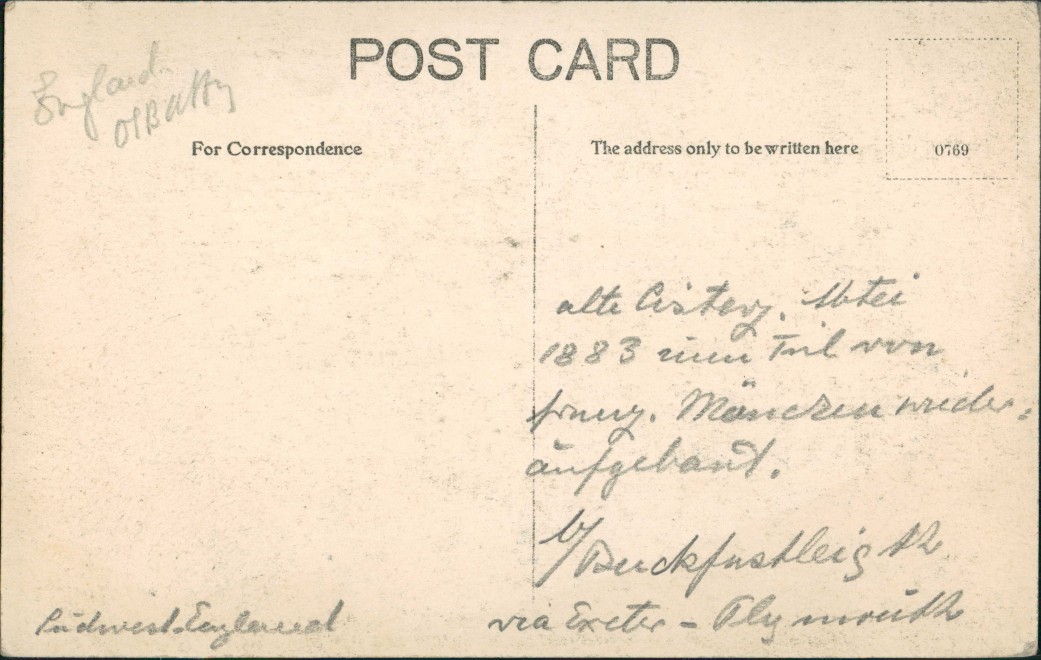 England
POST CARD
For Correspondence
The address only to be written here
0769
alte Cisterz. Abtei
1883 zum Teil von
franz. Mönchen wieder=
aufgebaut.
b/ Buckfastleigh
via Exeter - Plymouth
Südwest-England